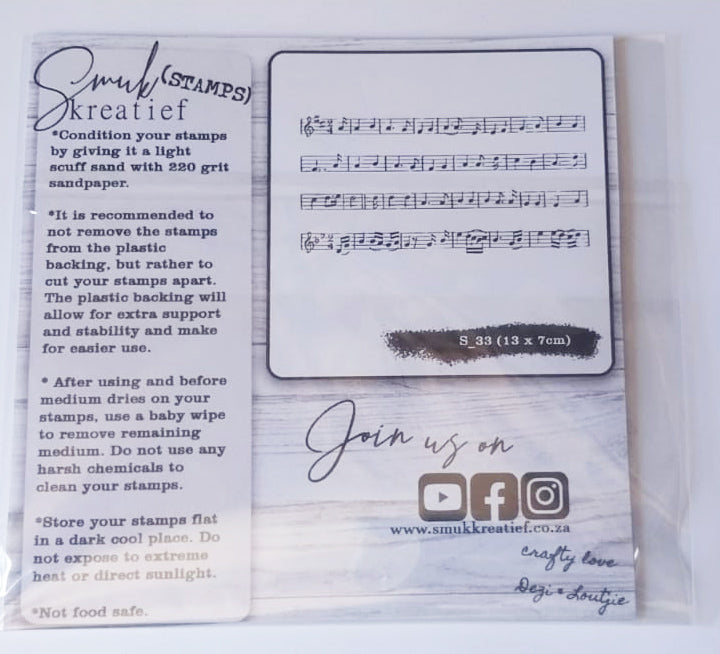 Smuk (STAMPS)
kreatief
*Condition your stamps
by giving it a light
scuff sand with 220 grit
sandpaper.
*It is recommended to
not remove the stamps
from the plastic
backing, but rather to
cut your stamps apart.
The plastic backing will
allow for extra support
and stability and make
for easier use.
* After using and before
medium dries on your
stamps, use a baby wipe
to remove remaining
medium. Do not use any
harsh chemicals to
clean your stamps.
*Store your stamps flat
in a dark cool place. Do
not expose to extreme
heat or direct sunlight.
*Not food safe.
S_33 (13 x 7cm)
Join us on
www.smukkreatief.co.za
crafty love
Dezi & Loutjie